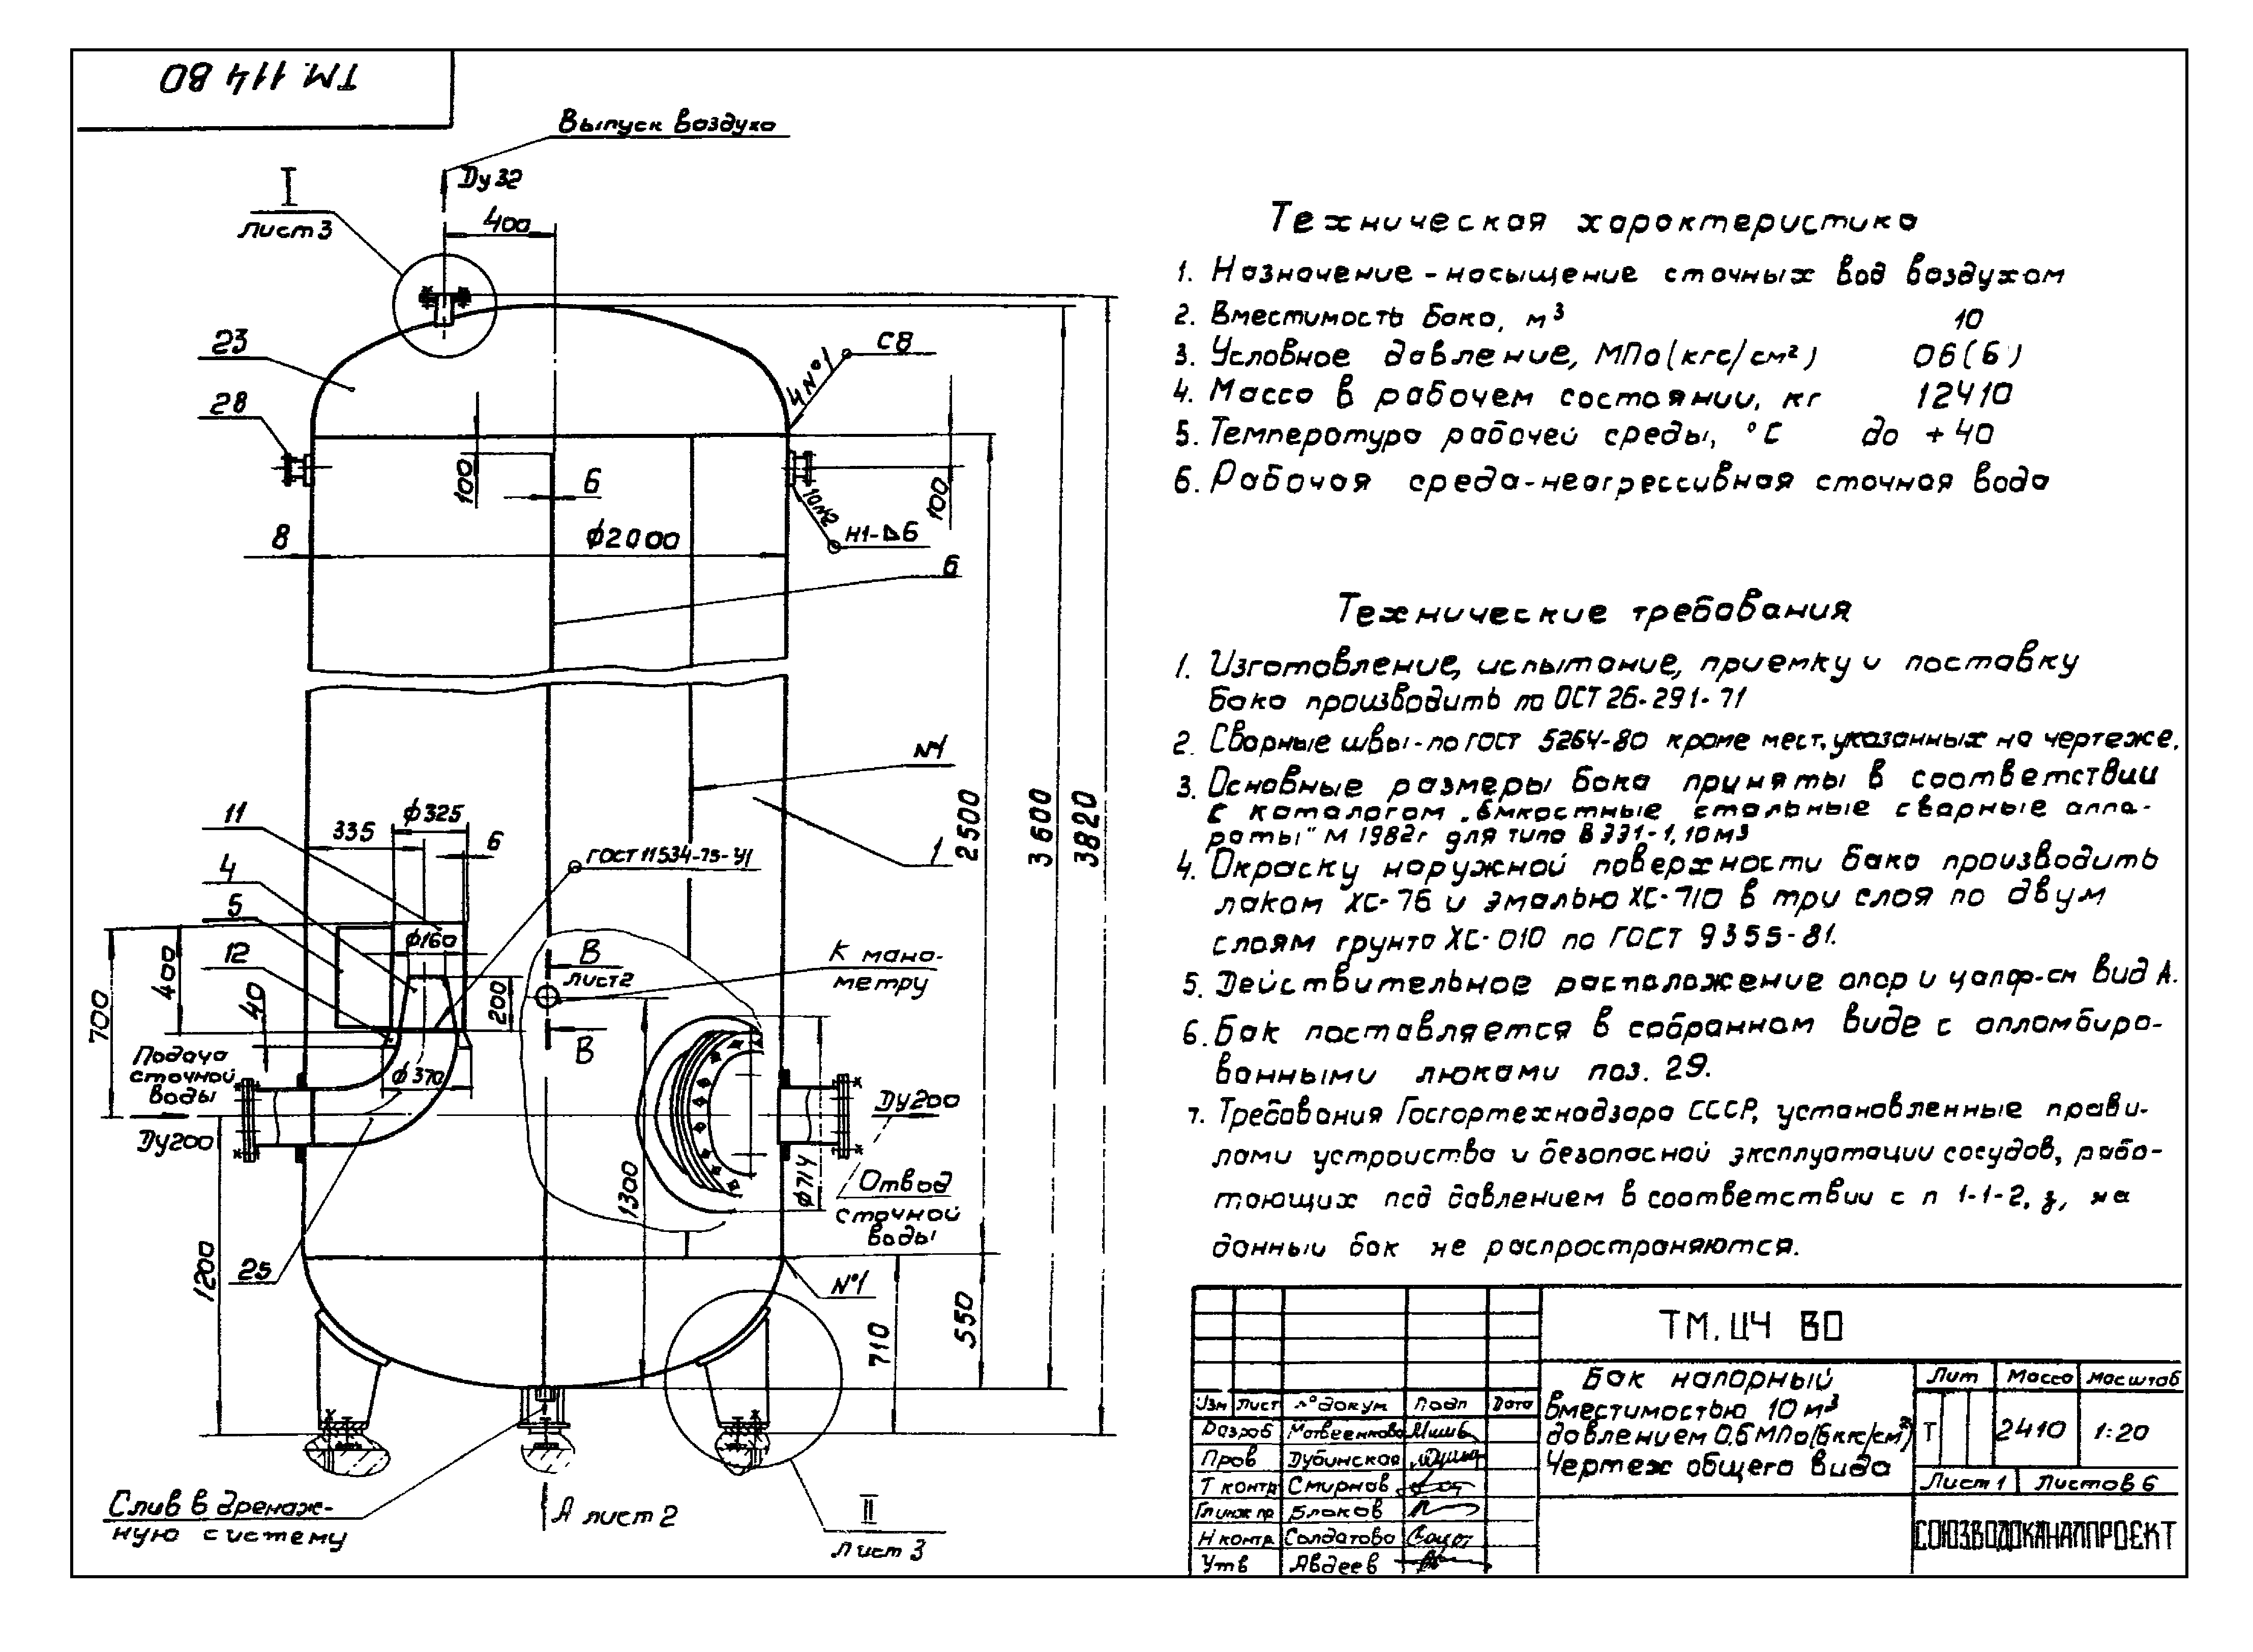 ТМ. 114 ВО
Выпуск воздуха
Dу 32
I
лист 3
400
23
28
4 №1
С8
100
6
100
10№2
Н1-⊿6
8
ф2000
6
№1
11
ф325
335
6
ГОСТ 11534-75-У1
1
2500
3600
3820
4
5
ф160
12
400
40
700
200
В
лист 2
К мано-
метру
В
Подача
сточной
воды
Dу200
ф370
Dу200
ф714
1300
Отвод
сточной
воды
1200
25
№1
710
550
Слив в дренаж-
ную систему
А лист 2
II
лист 3
Техническая характеристика
1. Назначение - насыщение сточных вод воздухом
2. Вместимость бака, м³ 10
3. Условное давление, МПа (кгс/см²) 06(6)
4. Масса в рабочем состоянии, кг 12410
5. Температура рабочей среды, °С до +40
6. Рабочая среда-неагрессивная сточная вода
Технические требования
1. Изготовление, испытание, приемку и поставку
бака производить по ОСТ 26-291-71
2. Сварные швы-по ГОСТ 5264-80 кроме мест, указанных на чертеже.
3. Основные размеры бака приняты в соответствии
с каталогом „Емкостные стальные сварные аппа-
раты" М 1982г для типа ВЭЭ1-1,10м3
4. Окраску наружной поверхности бака производить
лаком ХС-76 и эмалью ХС-710 в три слоя по двум
слоям грунта ХС-010 по ГОСТ 9355-81.
5. Действительное расположение опор и цапф-см вид А.
6. Бак поставляется в собранном виде с опломбиро-
ванными люками поз. 29.
7. Требования Госгортехнадзора СССР, установленные прави-
лами устройства и безопасной эксплуатации сосудов, рабо-
тающих под давлением в соответствии с п 1-1-2, на
данный бак не распространяются.
ТМ. 114 ВО
Бак напорный
вместимостью 10 м³
давлением 0,6 МПа (6 кгс/см²)
Чертеж общего вида
Лит Масса Масштаб
Т 2410 1:20
Лист 1 Листов 6
СОЮЗВОДОКАНАЛПРОЕКТ
Изм Лист № докум Подп Дата
Разраб Матвеенкова
Пров Дубинская
Т контр Смирнов
Гл инж пр Блаков
Н контр Солдатова
Утв Авдеев